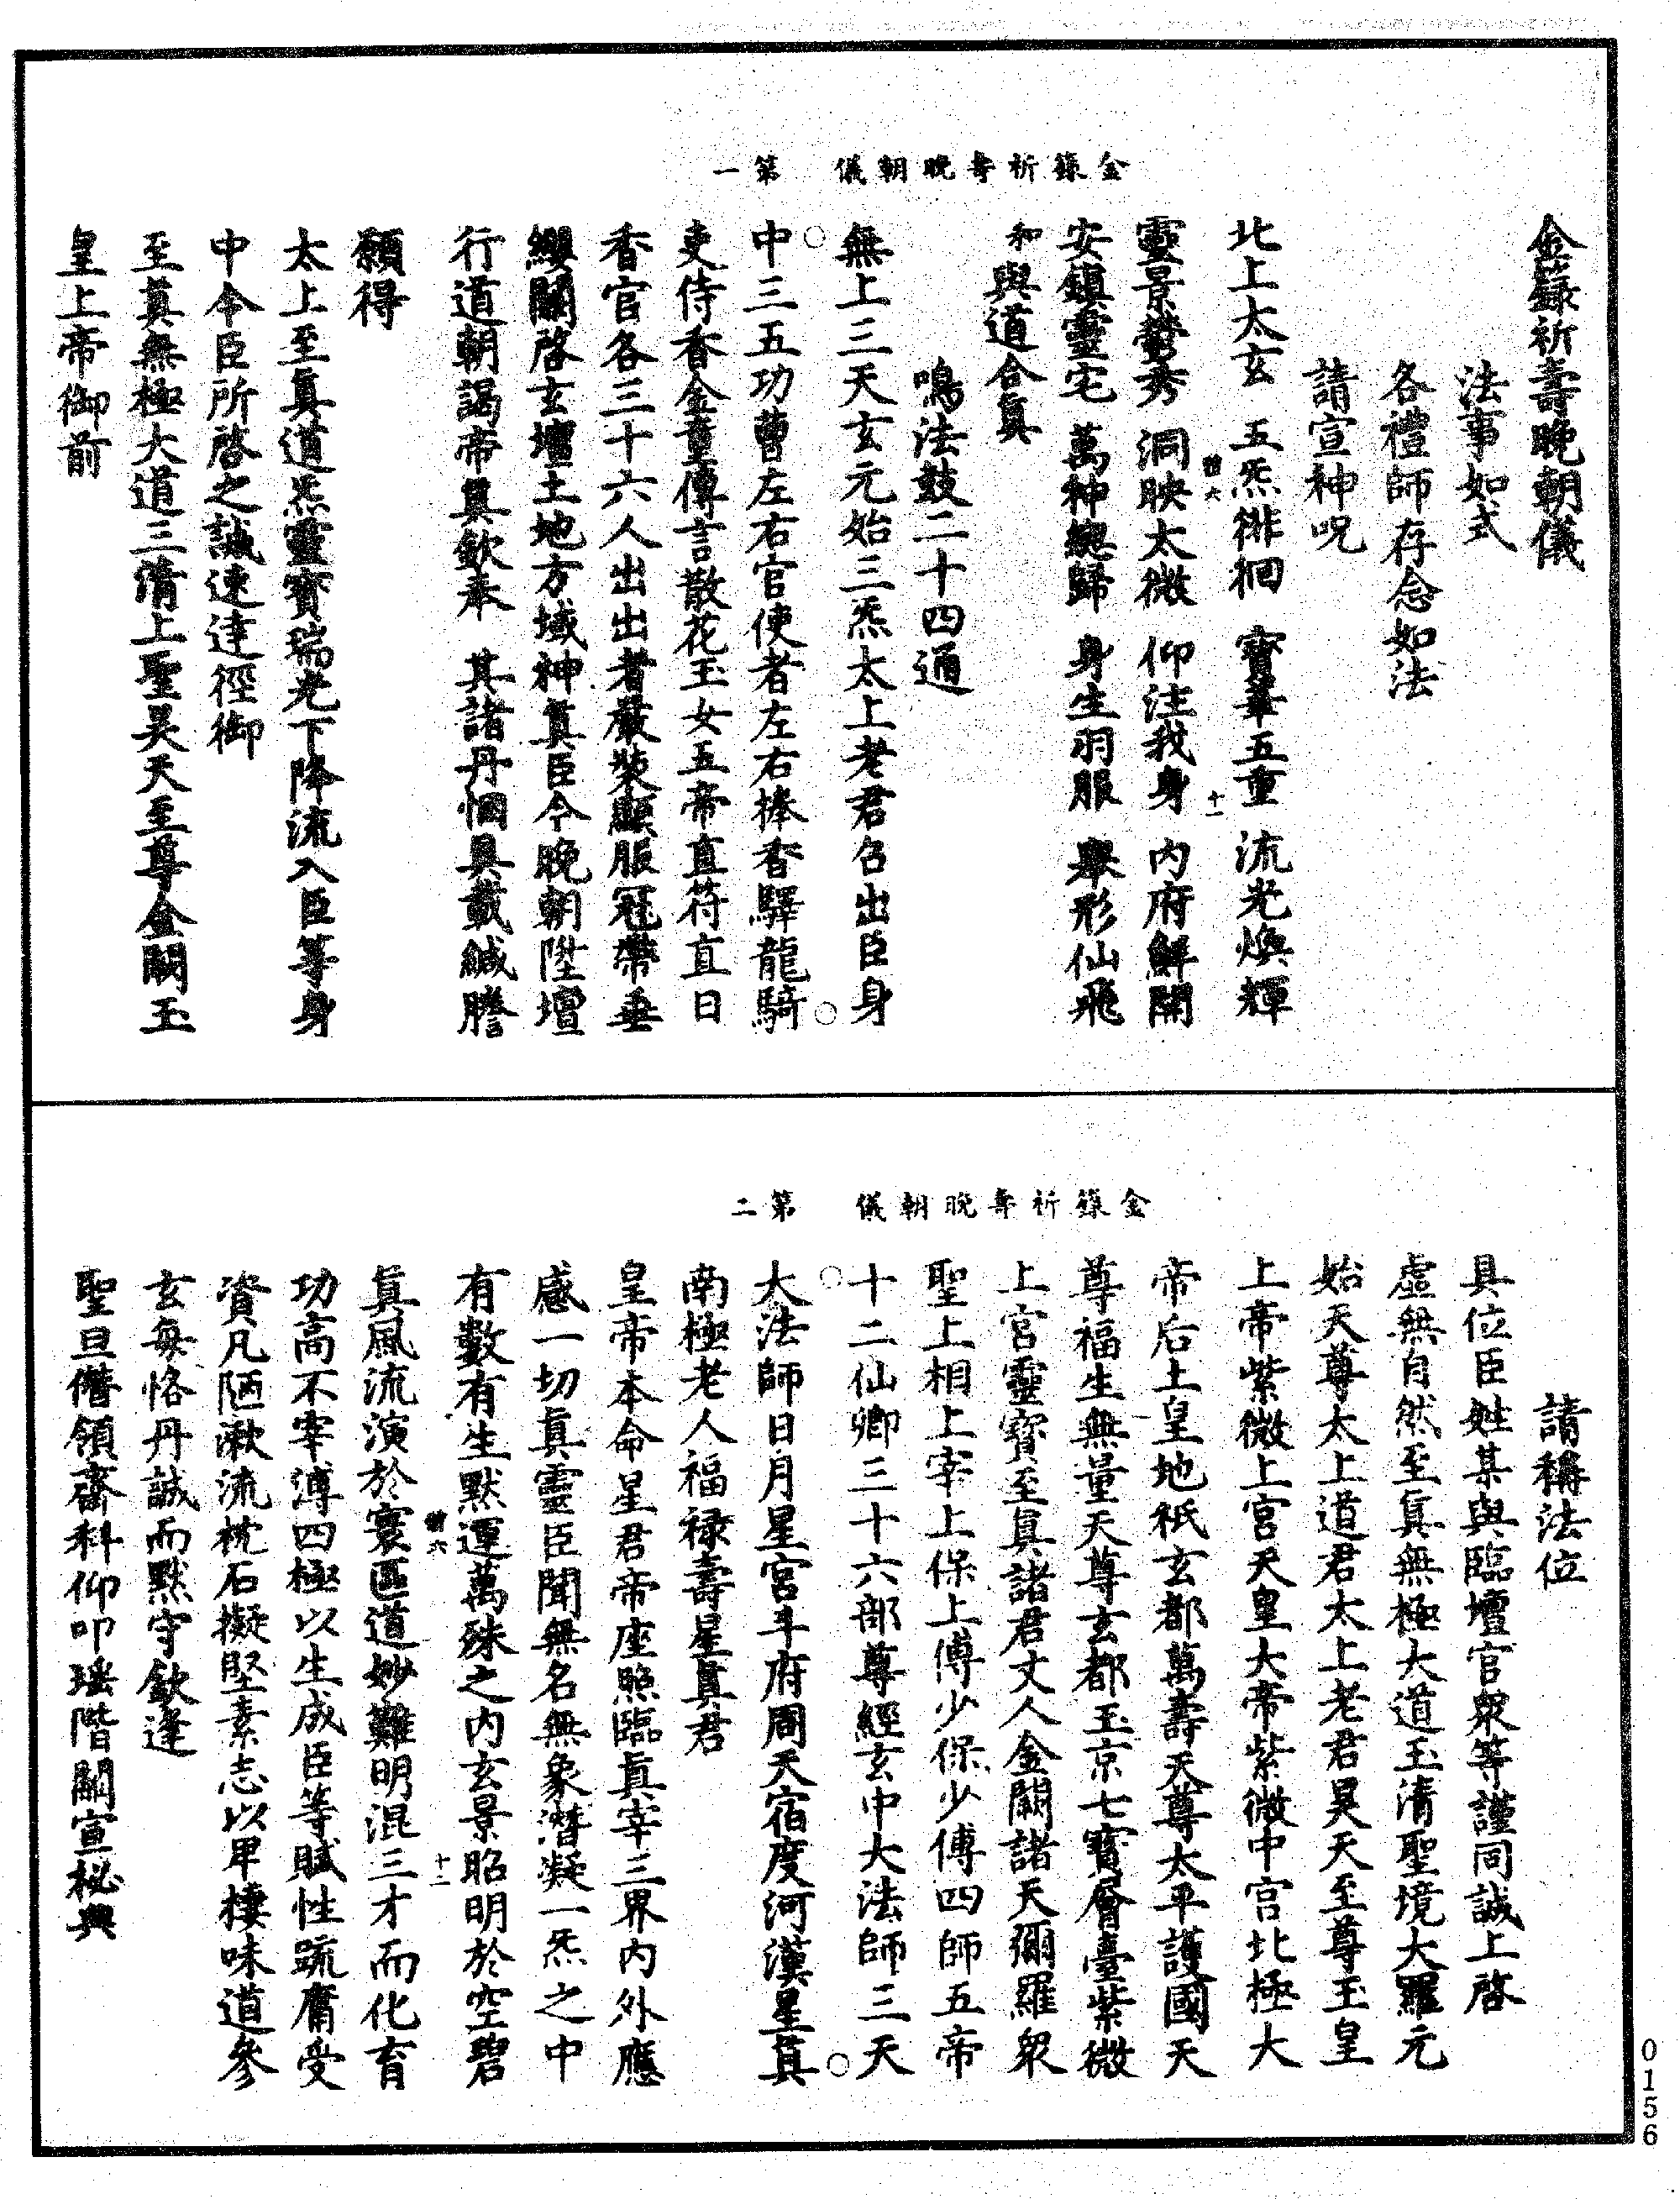 金籙祈壽晚朝儀　第一
金籙祈壽晚朝儀
法事如式
各禮師存念如法
請宣神呪
北上太玄　五炁徘徊　寶華五重　流光煥輝
六　十一
靈景鬱秀　洞映太微　仰注我身　內府鮮開
安鎮靈宅　萬神總歸　身生羽服　舉形仙飛
和與道合眞
鳴法鼓二十四通
無上三天玄元始三炁太上老君召出臣身
中三五功曹左右官使者左右捧香驛龍騎
吏侍香金童傳言散花玉女五帝直符直日
香官各三十六人出出者嚴裝顯服冠帶垂
纓關啓玄壇土地方域神眞臣今晚朝陞壇
行道朝謁帝眞欽奉　其諸丹悃具載緘謄
願得
太上至眞道炁靈寶瑞光下降流入臣等身
中令臣所啓之誠速達徑御
至眞無極大道三清上聖昊天至尊金闕玉
皇上帝御前
金籙祈壽晚朝儀　第二
請稱法位
具位臣姓某與臨壇官衆等謹同誠上啓
虛無自然至眞無極大道玉清聖境大羅元
始天尊太上道君太上老君昊天至尊玉皇
上帝紫微上宮天皇大帝紫微中宮北極大
帝后土皇地祇玄都萬壽天尊太平護國天
尊福生無量天尊玄都玉京七寶層臺紫微
上宮靈寶至眞諸君丈人金闕諸天彌羅衆
聖上相上宰上保上傅少保少傅四師五帝
十二仙卿三十六部尊經玄中大法師三天
大法師日月星宮斗府周天宿度河漢星眞
南極老人福祿壽星眞君
皇帝本命星君帝座照臨眞宰三界內外應
感一切眞靈臣聞無名無象潛凝一炁之中
有數有生默運萬殊之內玄景昭明於空碧
六　十二
眞風流演於寰區道妙難明混三才而化育
功高不宰溥四極以生成臣等賦性疏庸受
資凡陋漱流枕石擬堅素志以甲棲味道參
玄每恪丹誠而默守欽逢
聖旦僭領齋科仰叩瑤階闡宣祕典
0156